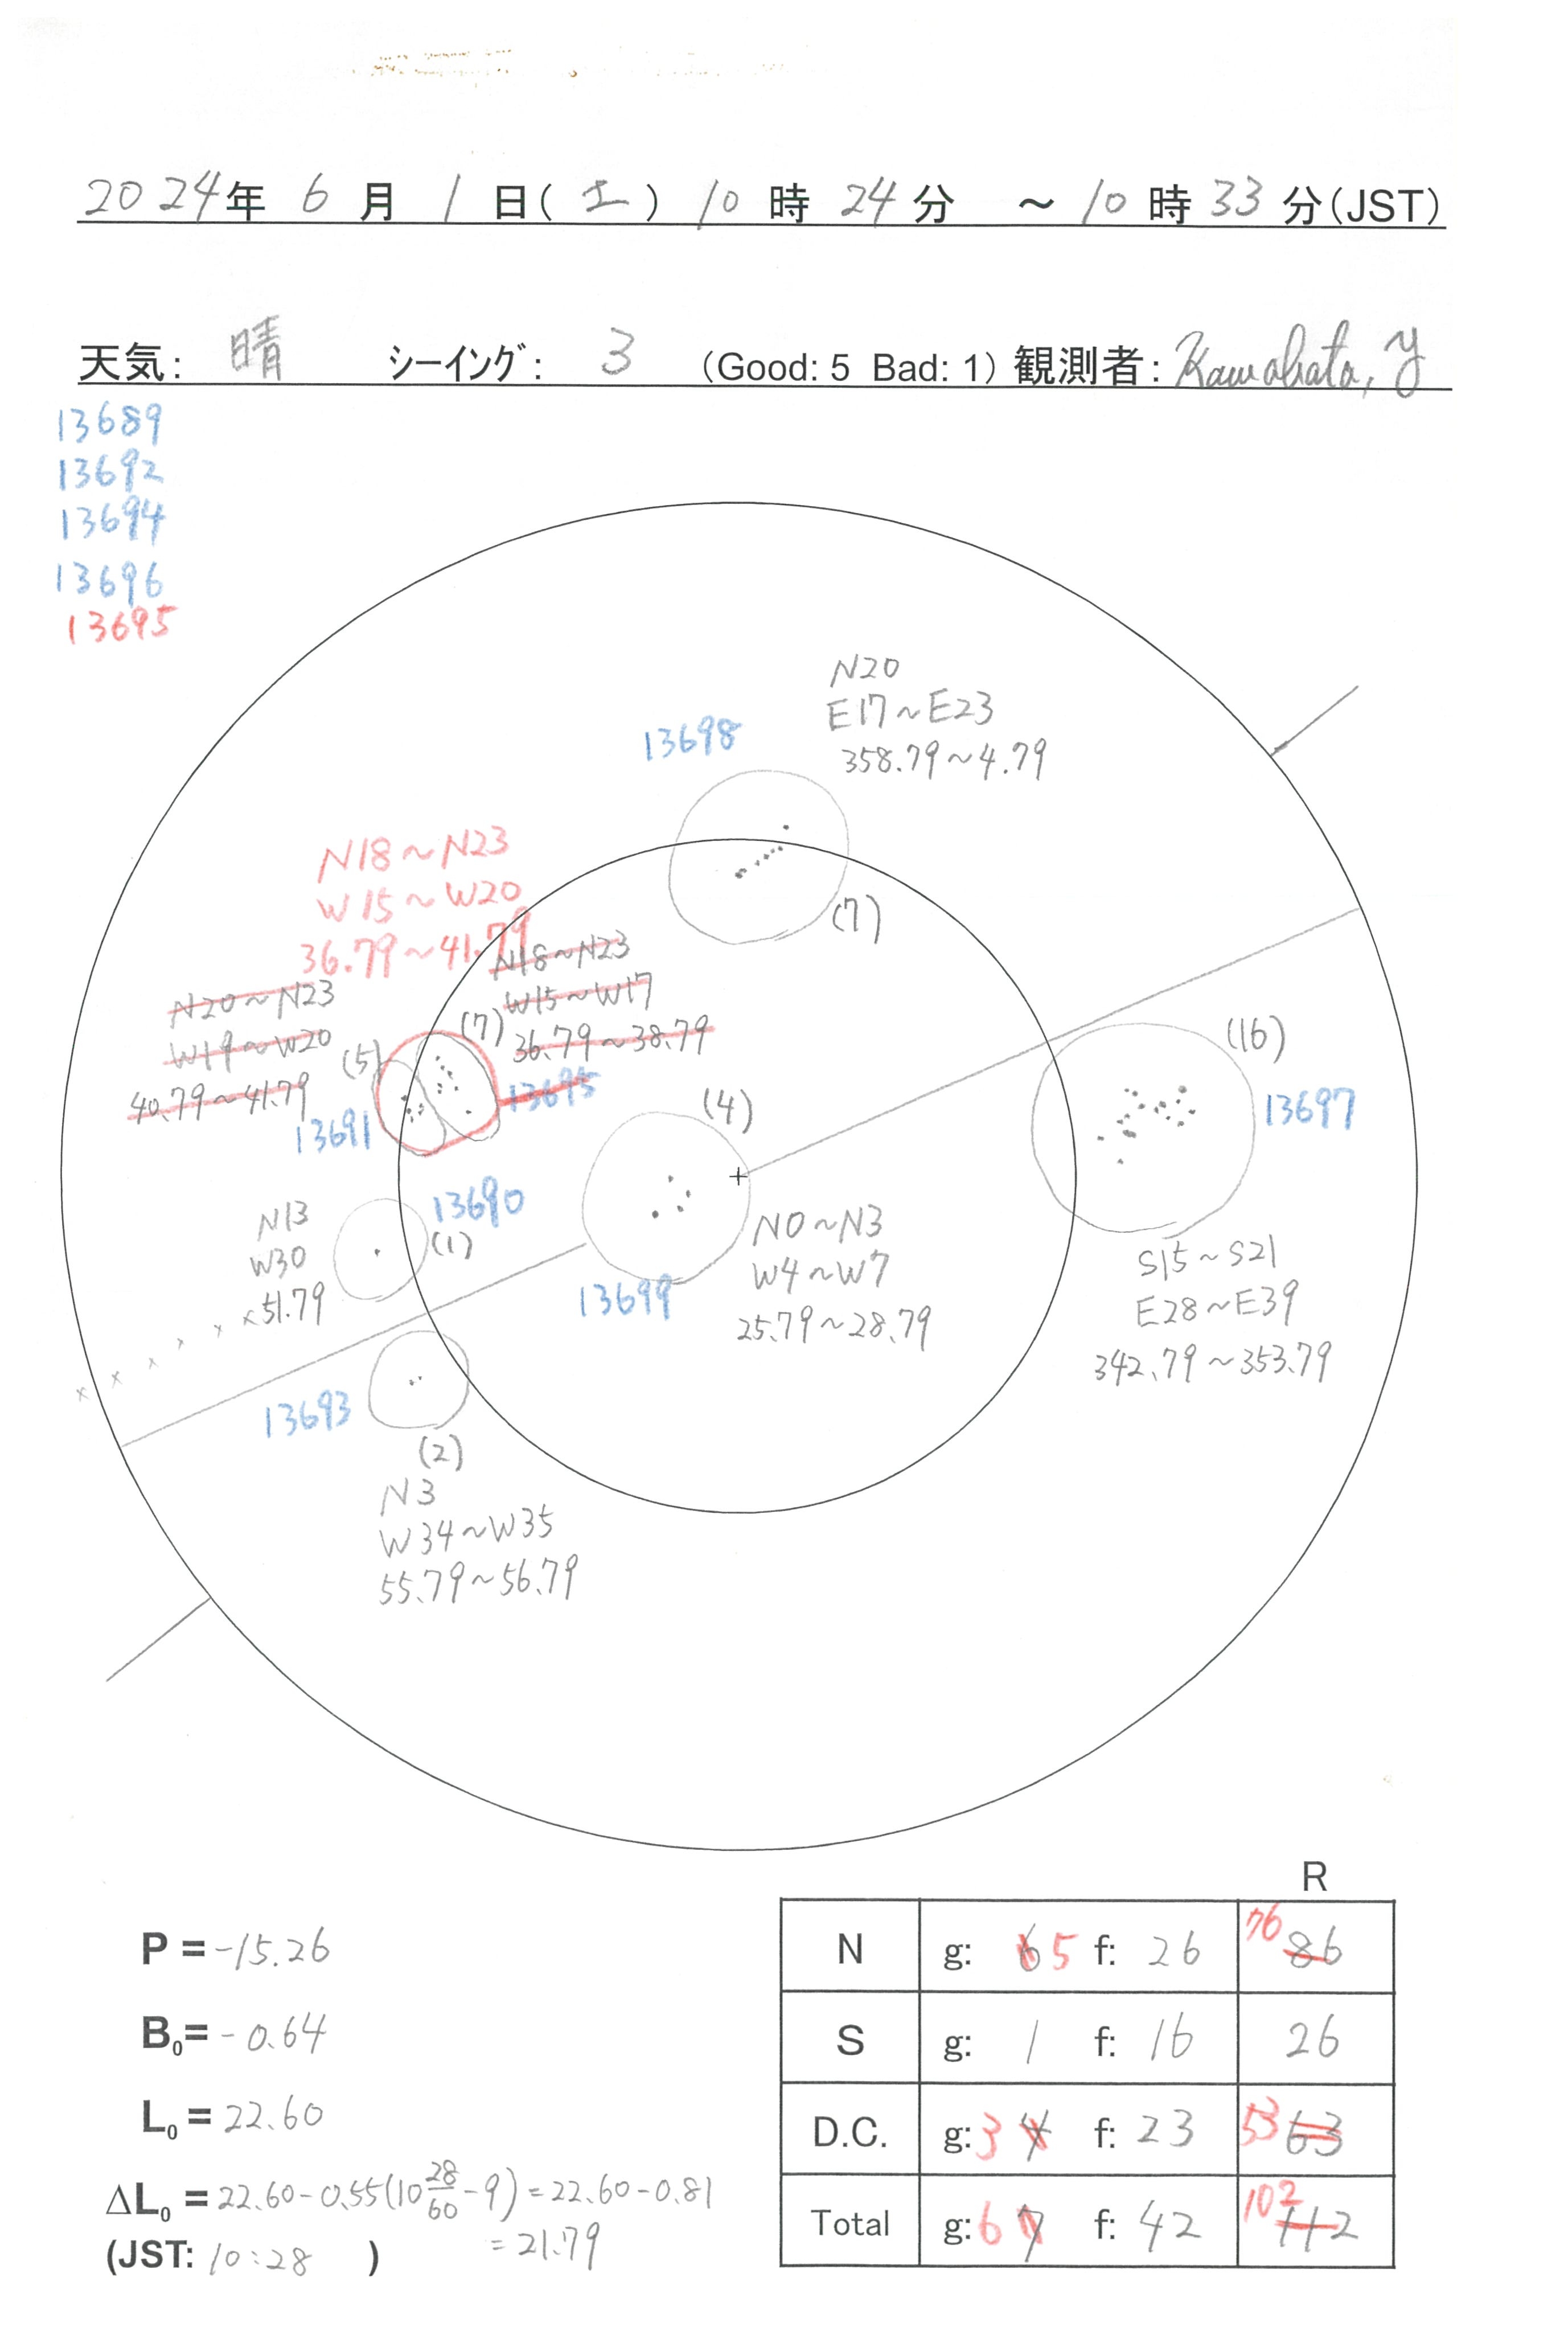 2024年 6 月 1 日(土) 10 時 24 分 ～ 10 時 33 分(JST)
天気: 晴 シーイング: 3 (Good: 5 Bad: 1) 観測者: Kawabata, Y
13689
13692
13694
13696
13695
N20
E17~E23
358.79~4.79
13698
(7)
N18~N23
W15~W20
36.79~41.79
N18~N23
W15~W17
36.79~38.79
(7)
13695
N20~N23
W19~W20
40.79~41.79
(5)
13691
(16)
13697
S15~S21
E28~E39
342.79~353.79
(4)
13699
N0~N3
W4~W7
25.79~28.79
13690
(1)
N13
W30
51.79
13693
(2)
N3
W34~W35
55.79~56.79
P = -15.26
B0= -0.64
L0 = 22.60
ΔL0 = 22.60-0.55(10 28/60 -9) = 22.60-0.81
= 21.79
(JST: 10:28 )
R
N g: 6 5 f: 26 76 86
S g: 1 f: 16 26
D.C. g: 3 4 f: 23 53 63
Total g: 6 7 f: 42 102 112